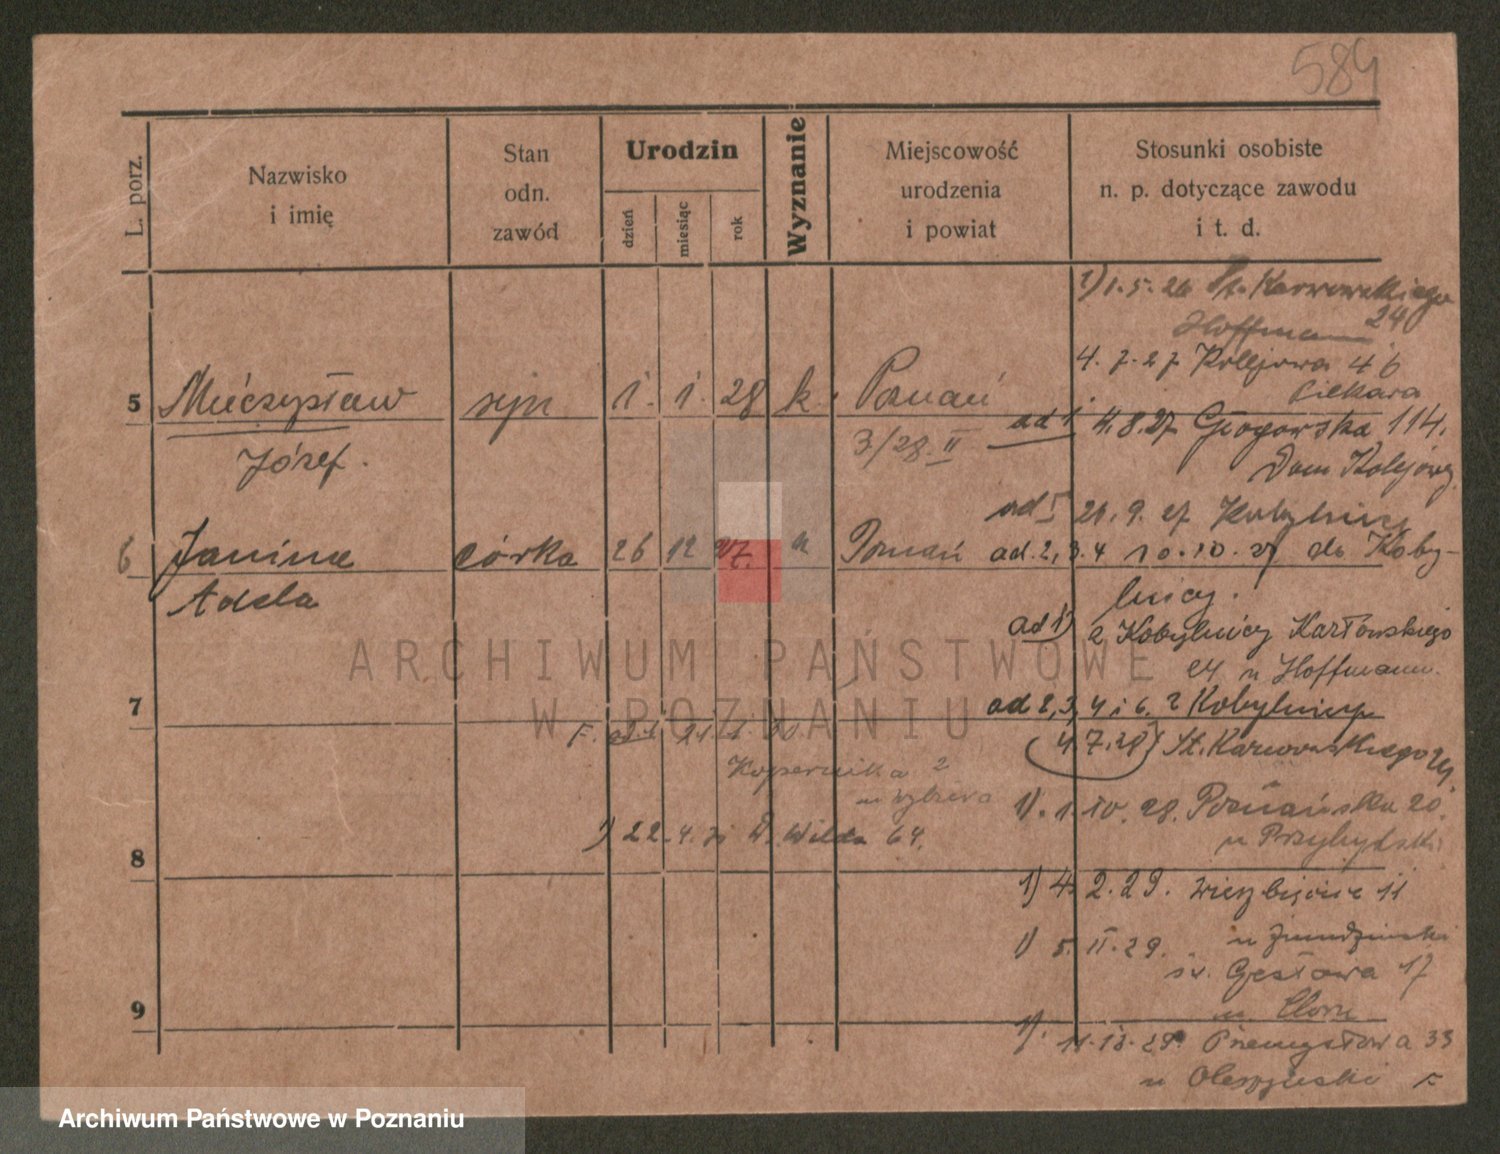 584
L. porz.
Nazwisko
i imię
Stan
odn.
zawód
Urodzin
dzień
miesiąc
rok
Wyznanie
Miejscowość
urodzenia
i powiat
Stosunki osobiste
n. p. dotyczące zawodu
i t. d.
1) 1.5.26 St. Karwowskiego
24
Hoffmann
4.7.27 Kolejowa 46
Piekara
5 Mieczysław syn 1. 1. 28 k. Poznań
Józef.
3/28.II
ad 1. 4.8.27 Głogowska 114.
Dom Kolejowy
ad 5 21.9.27 Kobylnicy
6 Janina córka 26 12 27. k Poznań
Adela
ad. 2, 3. 4 10.10.27 do Koby-
lnicy.
ad 1) z Kobylnicy Karłowskiego
24 u Hoffmann.
7
ad 2, 3, 4 i 6. z Kobylnicy
4.7.28 St. Karwowskiego 24
Kopernika 2
u
1). 1.IV.28. Poznańska 20.
u Przybylski
8
1) 22.4.31 W. Wilda 64.
1) 4. 2.29. Wierzbięcice 11
u
1) 5.II.29.
św. 17
u
9
1). 11.12.29. Przemysłowa 33
u
ARCHIWUM PAŃSTWOWE
W POZNANIU
Archiwum Państwowe w Poznaniu